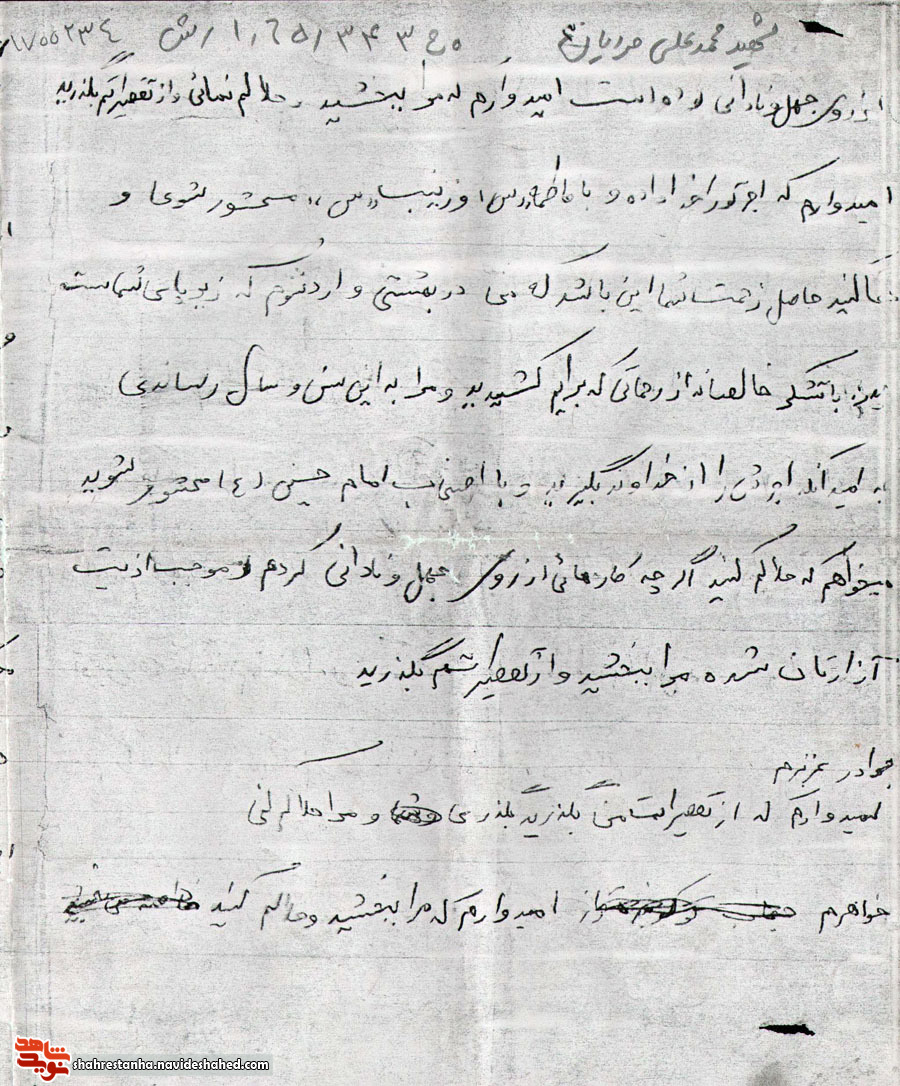 شهید محمد علی
از روی جهل و نادانی بوده است امیدوارم که مرا ببخشید و حلالم نمائی و از تقصیراتم بگذرید
امیدوارم که اجرتو را خدا داده و با فاطمه (س) و زینب (س) محشور شوی و
حاصل زحمت شما این باشد که من در بهشتی وارد شوم که زیر پای شماست
با تشکر خالصانه از زحماتی که برایم کشیدید و مرا به این سن و سال رساندی
به امید آنکه اجرش را از خداوند بگیرید و با اصحاب امام حسین (ع) محشور شوید
میخواهم که حلالم کنید اگر چه کارهائی از روی جهل و نادانی کردم و موجب اذیت
آزارتان شده مرا ببخشید و از تقصیراتم بگذرید
برادر عزیزم
امیدوارم که از تقصیرات من بگذرید بگذری و مرا حلالم کنی
خواهرم امیدوارم که مرا ببخشید و حلالم کنید
نوید شاهد
shahrestanha.navideshahed.com